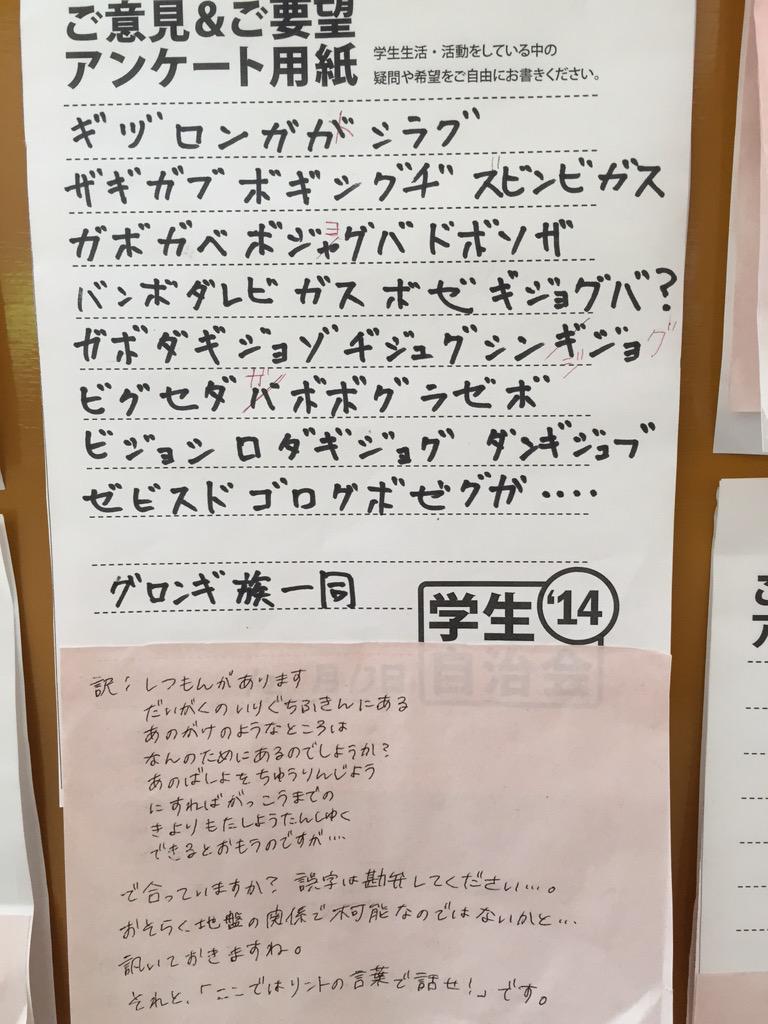 ご意見&ご要望
アンケート用紙
学生生活・活動をしている中の
疑問や希望をご自由にお書きください。
ギヅロンガガシラグ
ド
ザギガブボギシグヂ ズビンビガス
ガボガベボジャグバドボソザ
ヨ
バンボダレビガスボゼギジョグバ?
ガボダギジョゾヂジュグシンギジョ
ジ
グ
ビグセダバボボグラゼボ
ガ
ビジョシロダギジョグ ダンギジュブ
ゼビスドゴロググボゼグガ‥‥
グロンギ族一同
学生
'14
自治会
訳:しつもんがあります
だいがくのいりぐちふきんにある
あのがけのようなところは
なんのためにあるのでしょうか?
あのばしよをちゅうりんじよう
にすればがっこうまでの
きよりもたしようたんしゆく
できるとおもうのですが‥‥
で合っていますか? 誤字は勘弁してください…。
おそらく地盤の関係で不可能なのではないかと…
訊いておきますね。
それと、「ここではリントの言葉で話せ!」です。